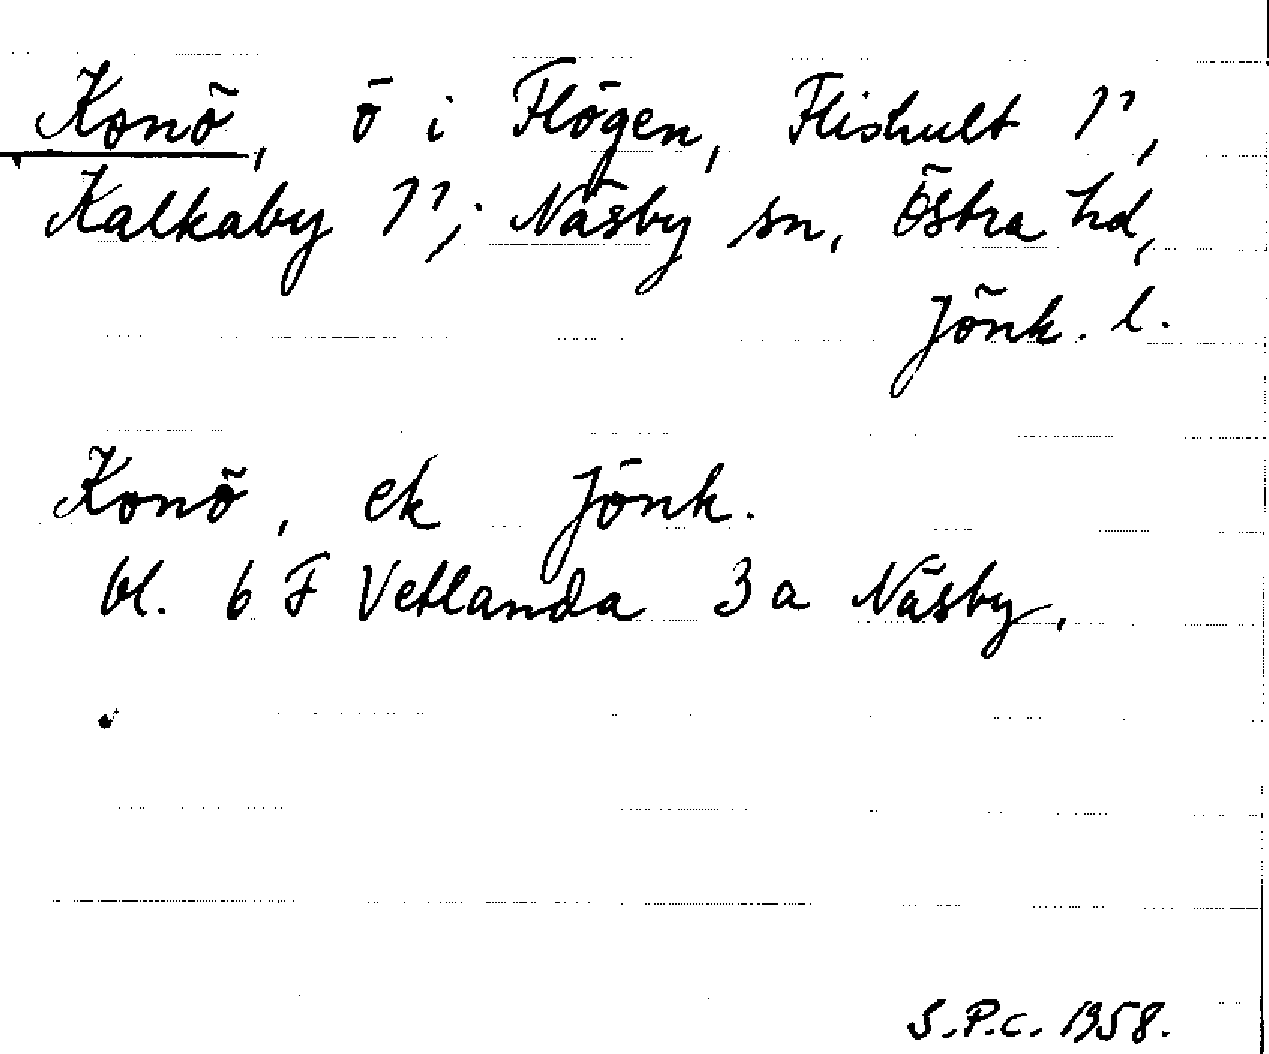 Konö, ö i Flögen, Flishult 1²,
Kalkaby 1²; Näsby sn, Östra hd,
Jönk. l.
Konö, ek Jönk.
bl. 6 F Vetlanda 3 a Näsby.
S.P.C. 1958.